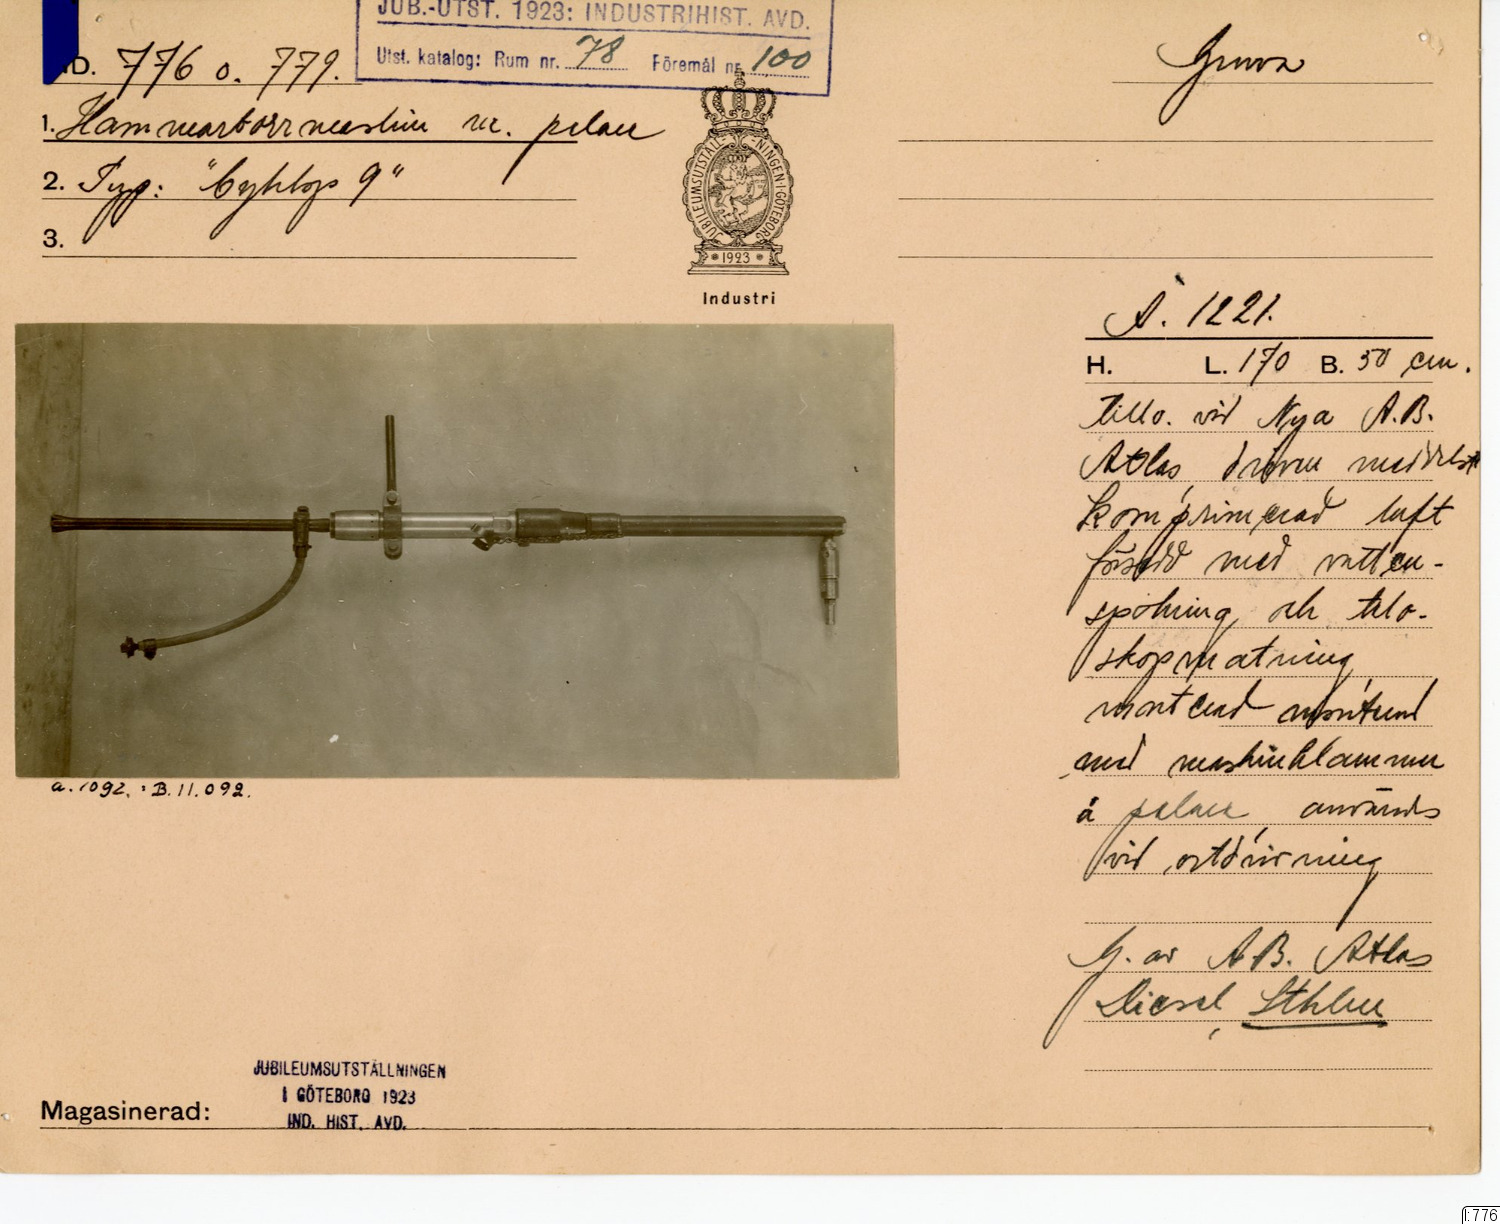 JUB.-UTST. 1923: INDUSTRIHIST. AVD.
Utst. katalog: Rum nr. 78 Föremål nr. 100
D. 776 o. 779.
Gruva
1. Hammarborrmaskin m. pelare
2. Typ: "Cyklop 9"
3.
JUBILEUMSUTSTÄLLNINGEN I GÖTEBORG
1923
Industri
A. 1221.
H. L. 170 B. 50 cm.
Tillv. vid Nya A.B.
Atlas, driven medelst
komprimerad luft
försedd med vatten-
spolning och tele-
skopmatning
monterad
med maskinklammer
å pelare, användes
vid ortdrivning
G. av A.B. Atlas
Diesel, Sthlm
a. 1092. : B.11.092.
JUBILEUMSUTSTÄLLNINGEN
I GÖTEBORG 1923
IND. HIST. AVD.
Magasinerad:
I:776